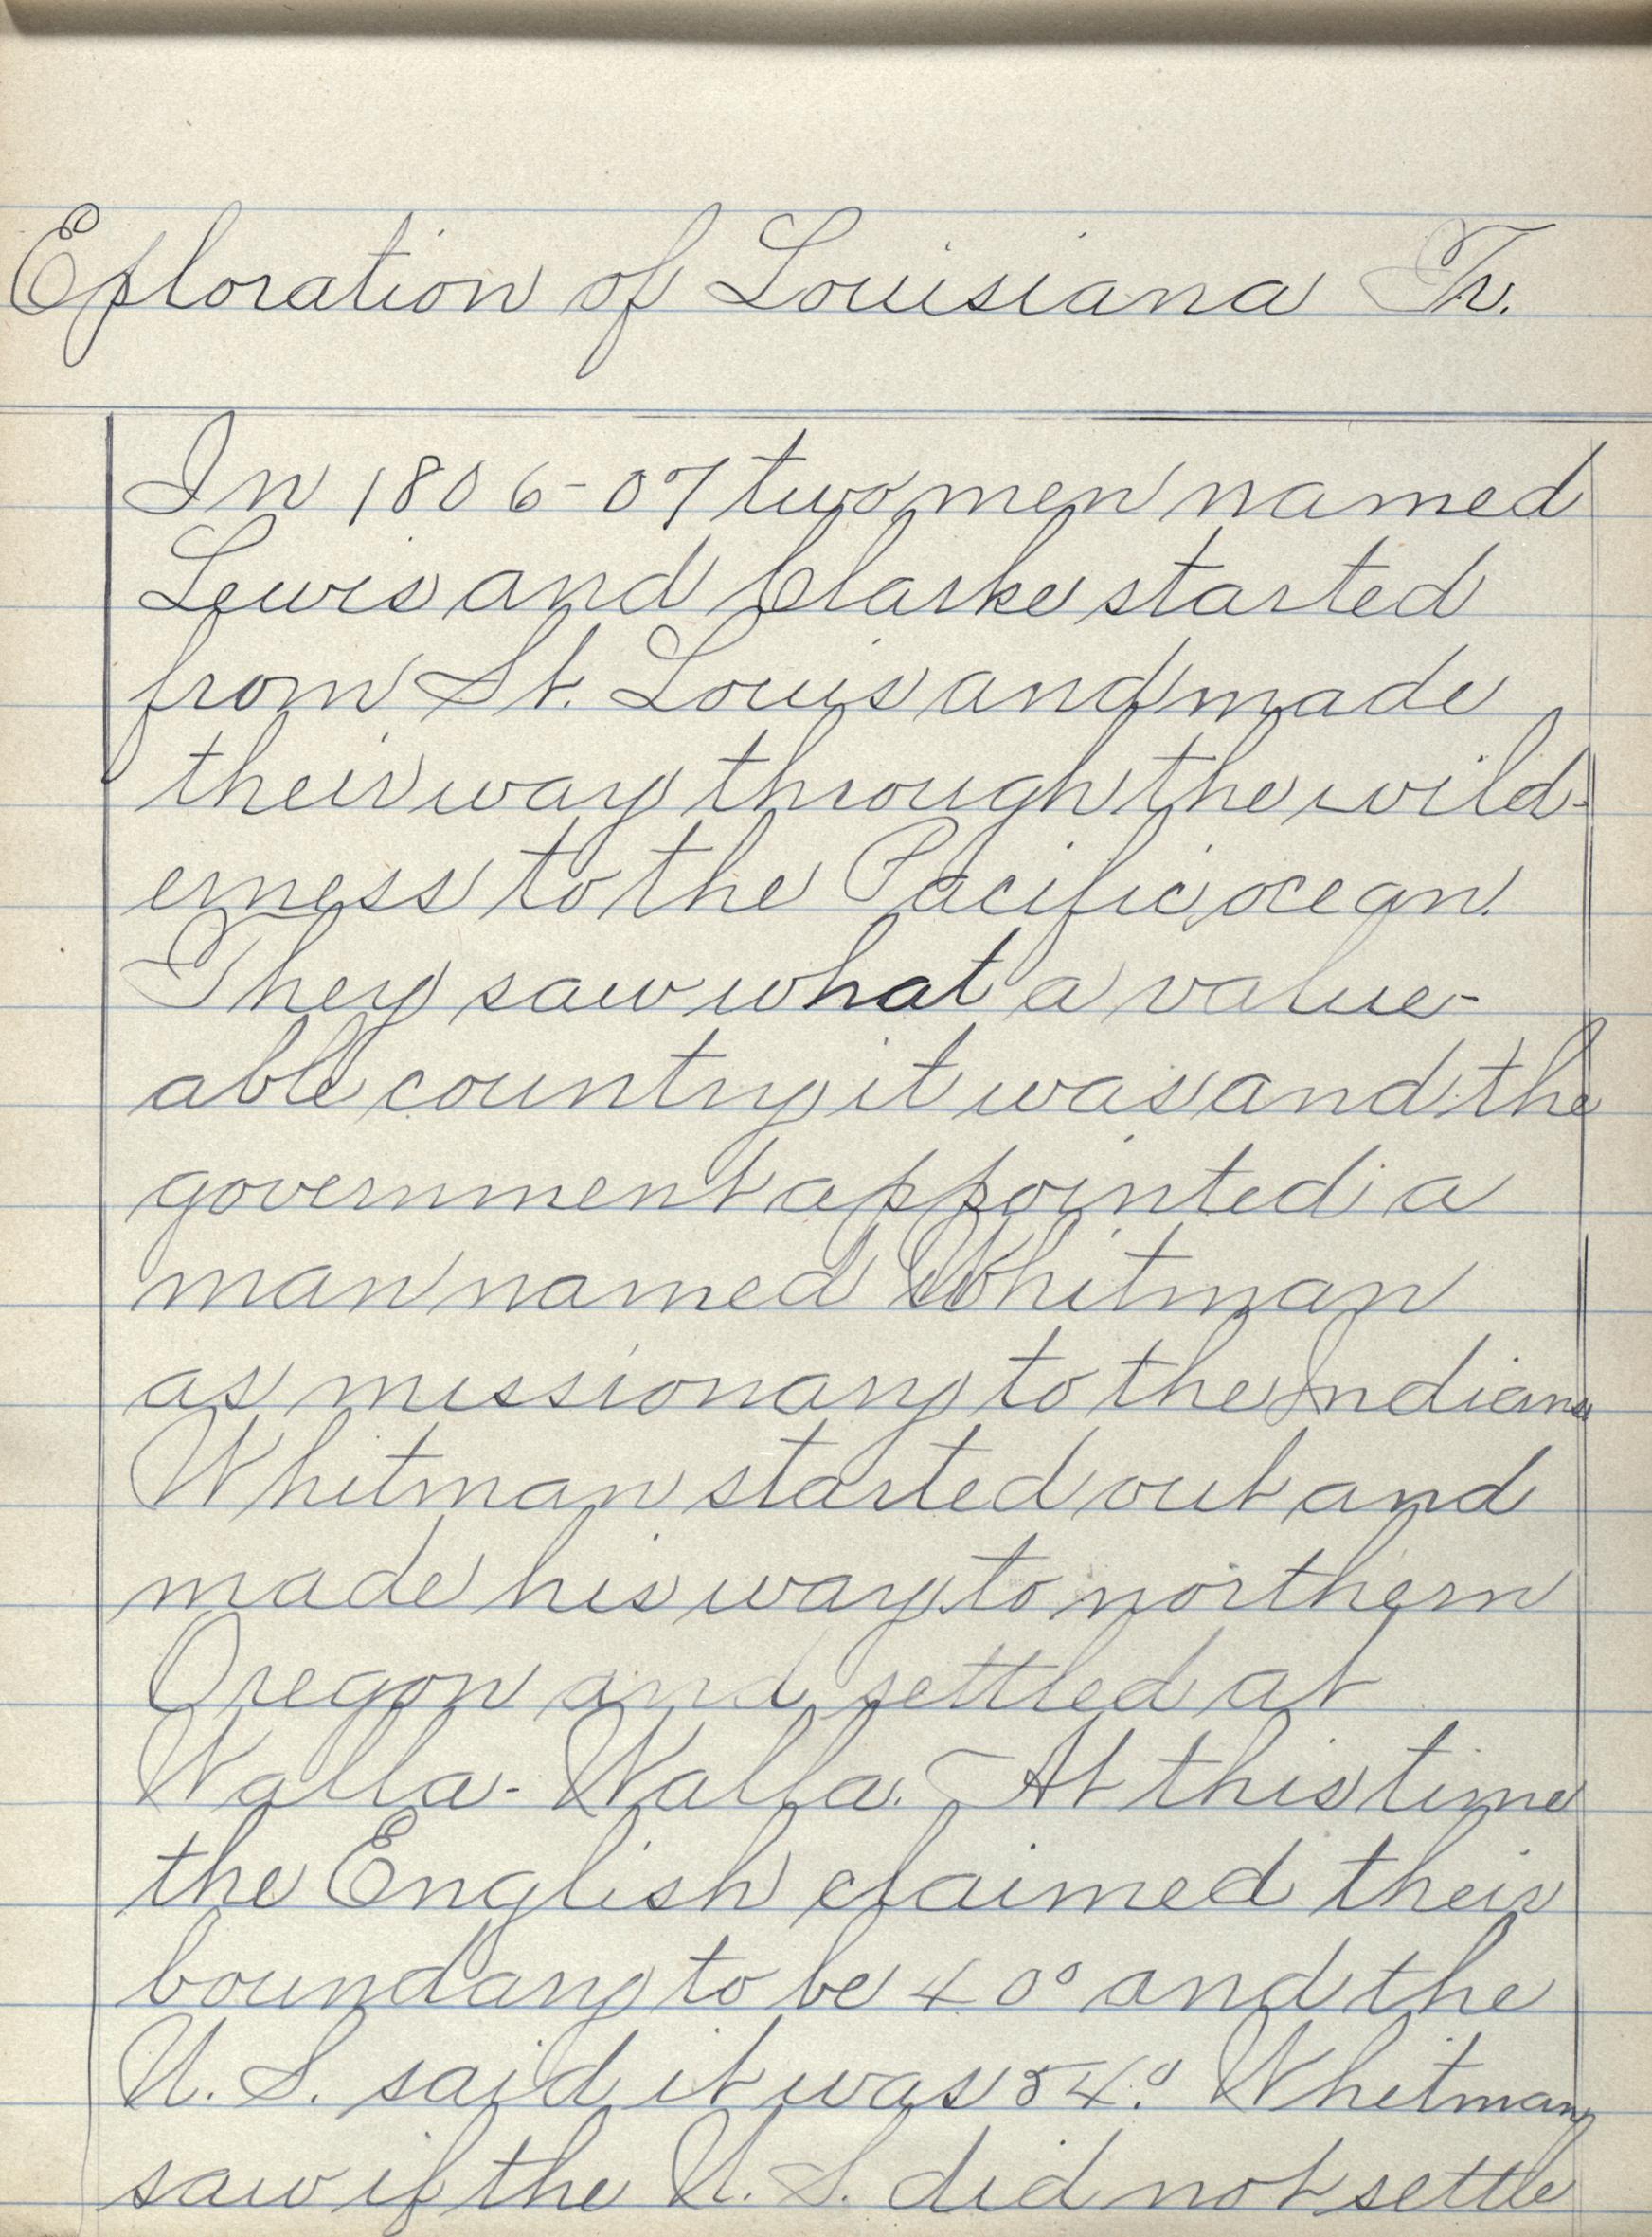 Eploration of Louisiana Tr.
In 1806-07 two men named
Lewis and Clarke started
from St. Louis and made
their way through the wild-
erness to the Pacific ocean.
They saw what a value-
able country it was and the
government appointed a
man named Whitman
as missionary to the Indians
Whitman started out and
made his way to northern
Oregon and settled at
Walla-Walla. At this time
the English claimed their
boundary to be 40° and the
U. S. said it was 54°. Whitman
saw if the U. S. did not settle